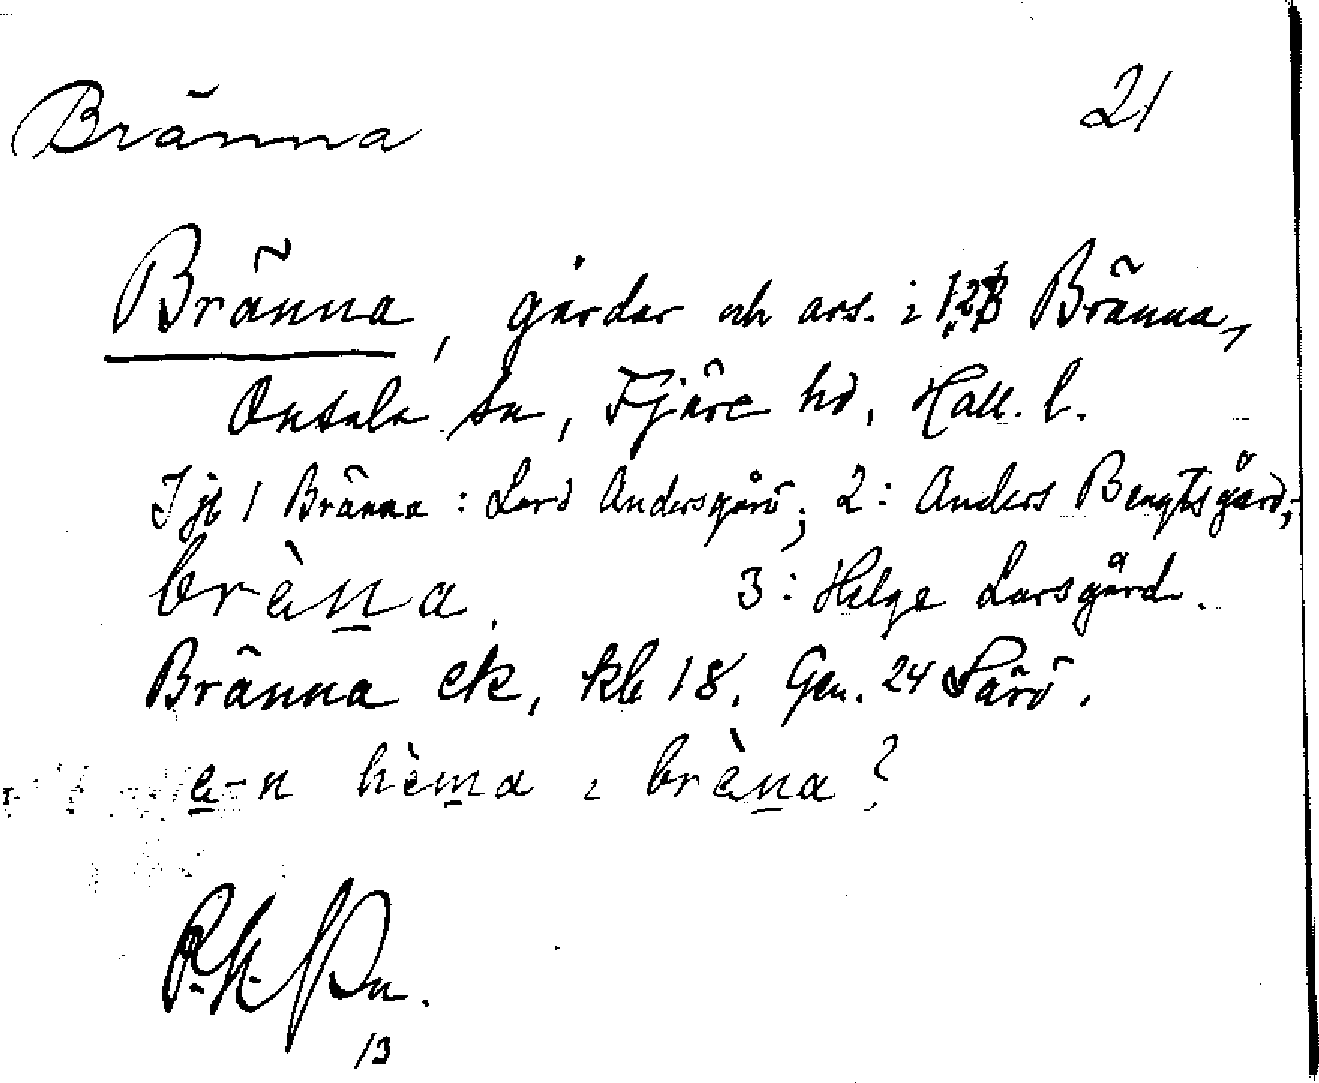 Bränna 21
Bränna, gårdar och avs. i 1, 2, 3 Bränna,
Onsala sn, Fjäre hd, Hall. l.
I jb 1 Bränna : Lars Andersgård; 2: Anders Bengtsgård;
brèna. 3: Helge Larsgård.
Bränna ek, kbl 18, Gen. 24 Särö.
a-n hèma i brèna?
/3